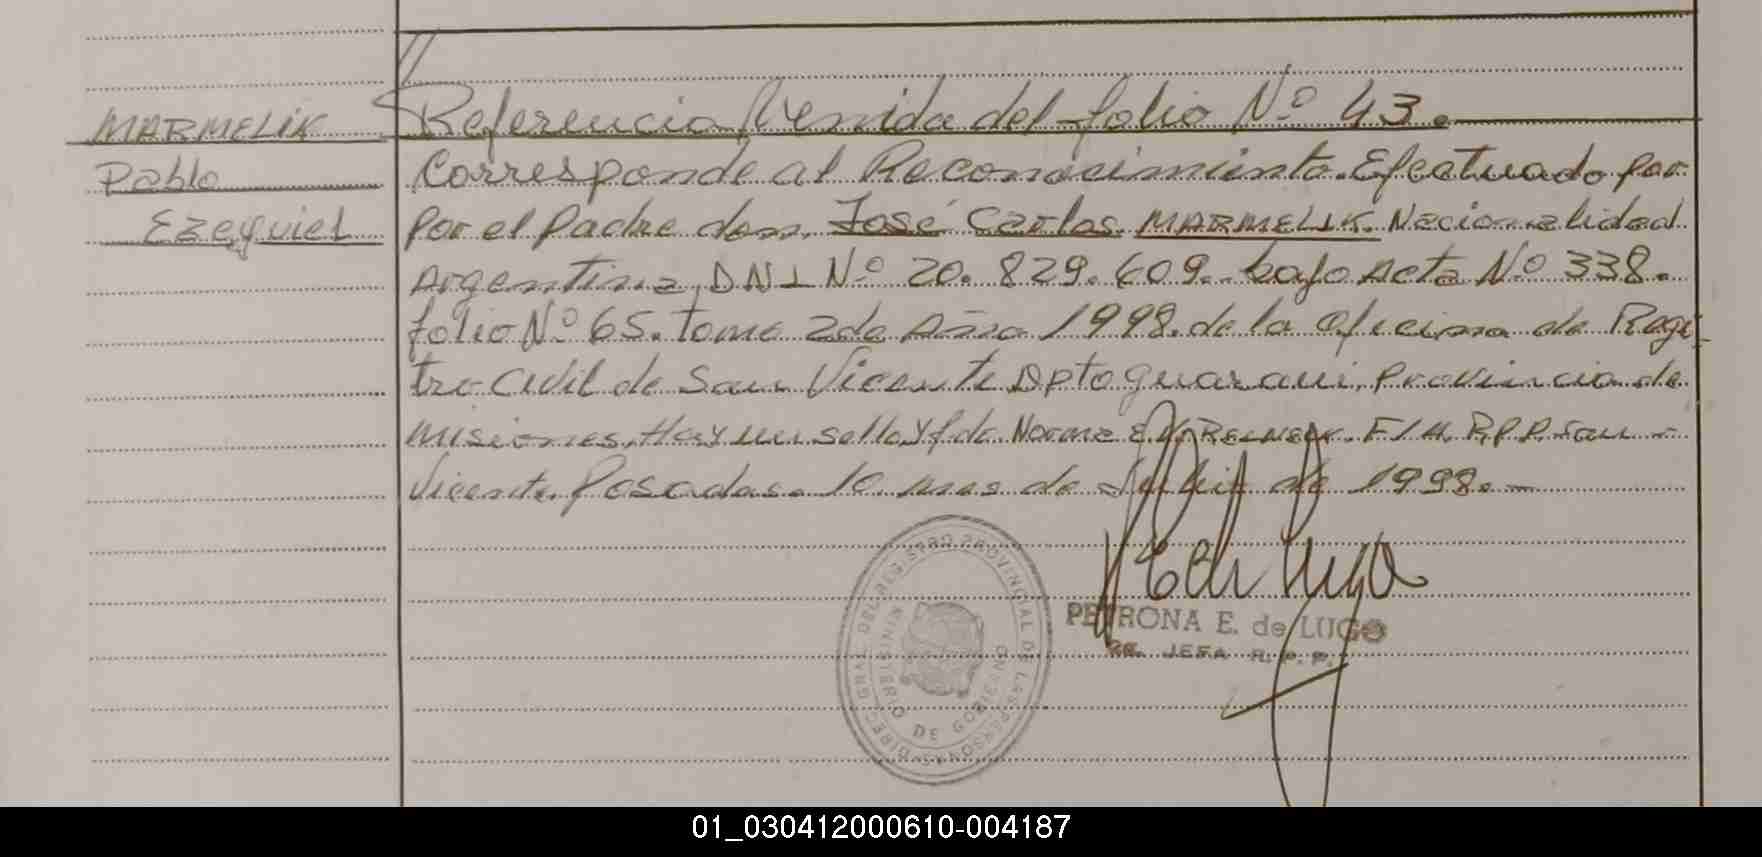 MARMELIK
Pablo
Ezequiel
Referencia Venida del folio Nº 43.
Corresponde al Reconocimiento. Efectuado por
por el Padre don. José Carlos. MARMELIK. Nacionalidad
Argentina, DNI Nº 20.829.609. bajo Acta Nº 338.
folio Nº 65. tomo 2do Año 1998. de la Oficina de Regis
tro Civil de San Vicente Dpto guarani, Provincia de
Misiones. Hay un sello y fdo. Norma E. F/M. R.P.P. San -
Vicente. Posadas. 10 mes de de 1998.-
PETRONA E. de LUGO
JEFA R.P.P.
DIREC. GRAL. DEL REGISTRO PROVINCIAL DE LAS PERSONAS
MINISTERIO DE GOBIERNO
01_030412000610-004187